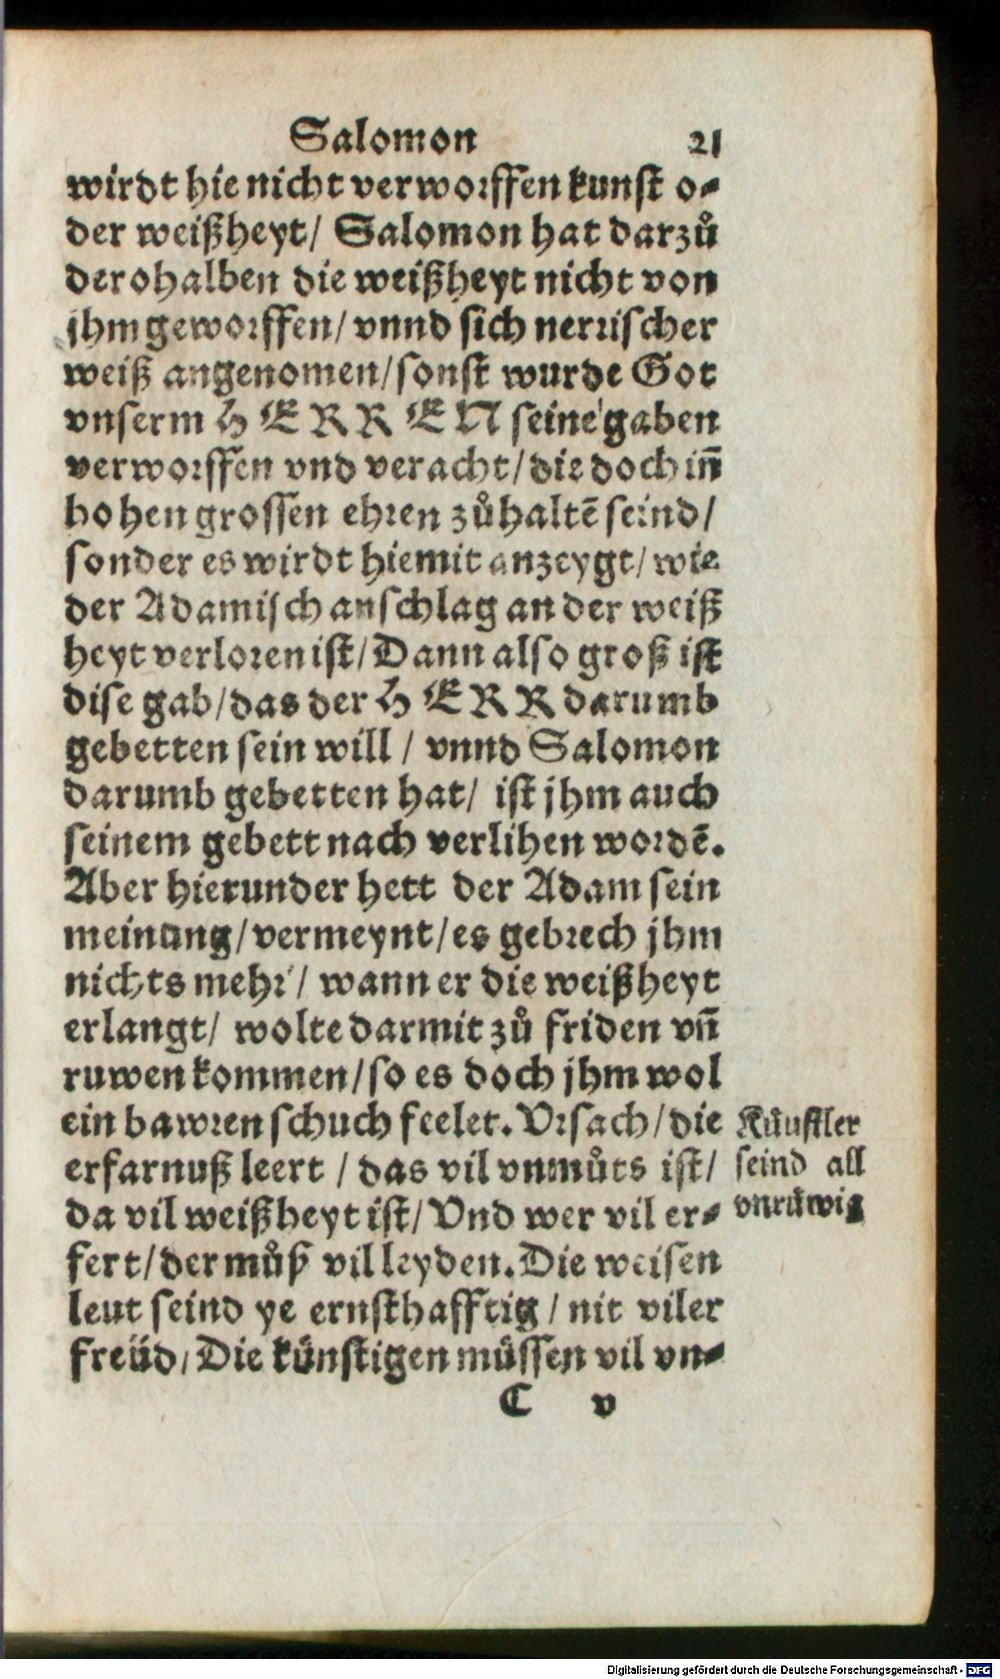 Salomon 21
wirdt hie nicht verworffen kunst o⸗
der weißheyt/ Salomon hat darzů
derohalben die weißheyt nicht von
jhm geworffen/ vnnd sich nerrischer
weiß angenomen/ sonst wurde Got
vnserm HERREN seine gaben
verworffen vnd veracht/ die doch iñ
hohen grossen ehren zůhaltē seind/
sonder es wirdt hiemit anzeygt/ wie
der Adamisch anschlag an der weiß
heyt verloren ist/ Dann also groß ist
dise gab/ das der HERR darumb
gebetten sein will / vnnd Salomon
darumb gebetten hat/ ist jhm auch
seinem gebett nach verlihen wordē.
Aber hierunder hett der Adam sein
meinung/ vermeynt/ es gebrech jhm
nichts mehr/ wann er die weißheyt
erlangt/ wolte darmit zů friden vñ
ruwen kommen/ so es doch jhm wol
ein bawren schuch feelet. Vrsach/ die
erfarnuß leert / das vil vnmůts ist/
da vil weißheyt ist/ Vnd wer vil er⸗
fert/ der můß vil leyden. Die weisen
leut seind ye ernsthafftig / nit viler
freüd/ Die künstigen müssen vil vn⸗
seind all
vnrůwig
C v
Digitalisierung gefördert durch die Deutsche Forschungsgemeinschaft - DFG